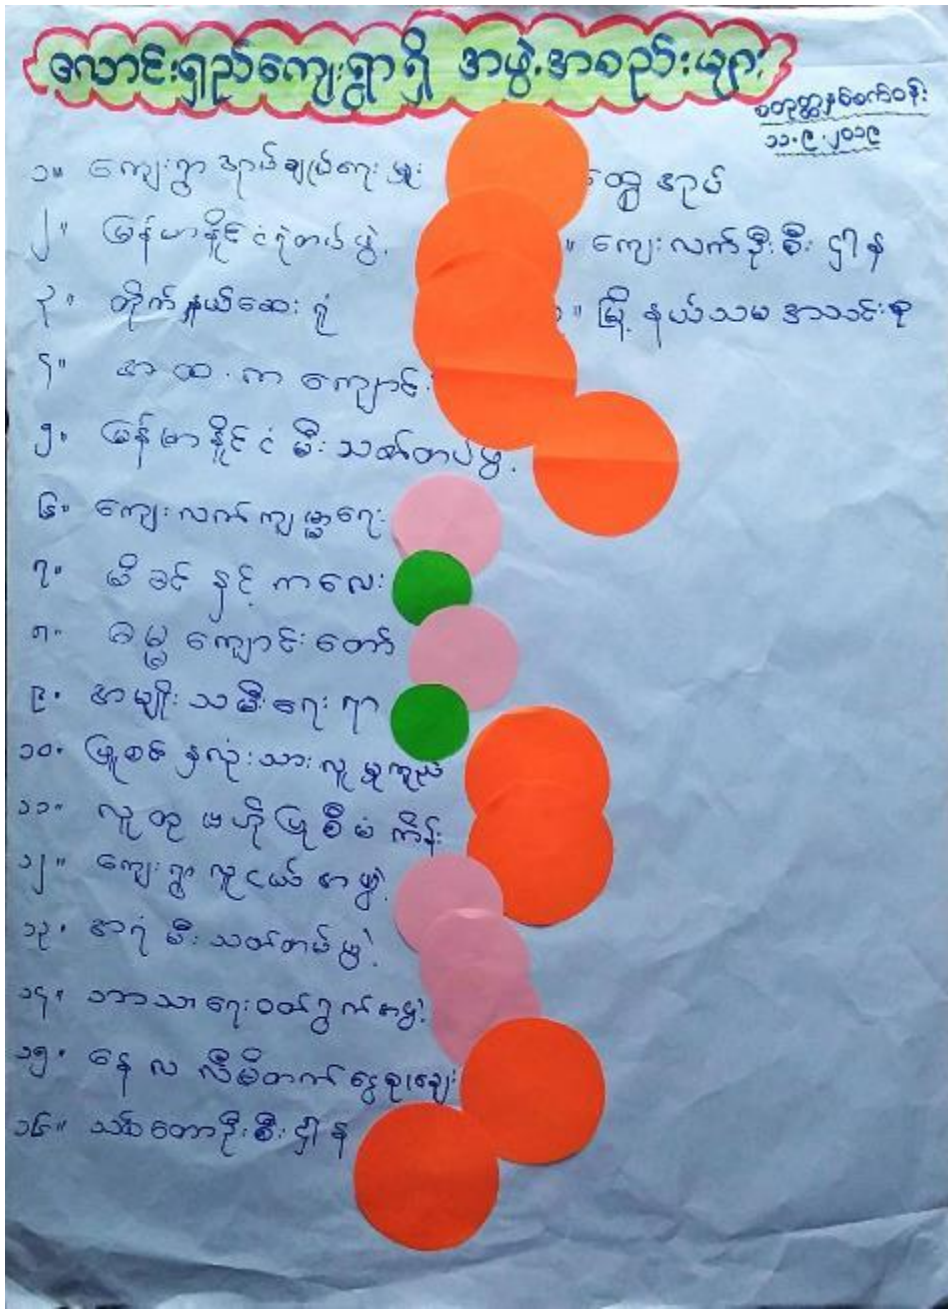 လောင်းရှည်ကျေးရွာရှိ အဖွဲ့အစည်းများ
စတုတ္ထနှစ်စက်ဝန်း
၁၁.၉.၂၀၁၉
၁။ ကျေးရွာအုပ်ချုပ်ရေးမှူး
၂။ မြန်မာနိုင်ငံရဲတပ်ဖွဲ့
၃။ တိုက်နယ်ဆေးရုံ
၄။ အ.ထ.က ကျောင်း
၅။ မြန်မာနိုင်ငံ မီးသတ်တပ်ဖွဲ့
၆။ ကျေးလက်ကျန်းမာရေး
၇။ မိခင်နှင့်ကလေး
၈။ ဓမ္မကျောင်းတော်
၉။ အမျိုးသမီးရေးရာ
၁၀။ ဖြူစင်နှလုံးသားလူမှုကူညီ
၁၁။ လူထုဗဟိုပြုစီမံကိန်း
၁၂။ ကျေးရွာလူငယ်အဖွဲ့
၁၃။ အရံမီးသတ်တပ်ဖွဲ့
၁၄။ ဘာသာရေးဝတ်ရွက်အဖွဲ့
၁၅။ နေလလီမိတက်ငွေစုချေး
၁၆။ သစ်တောဦးစီးဌာန
ထွေအုပ်
။ ကျေးလက်ဦးစီးဌာန
။ မြို့နယ်သမအသင်းစု